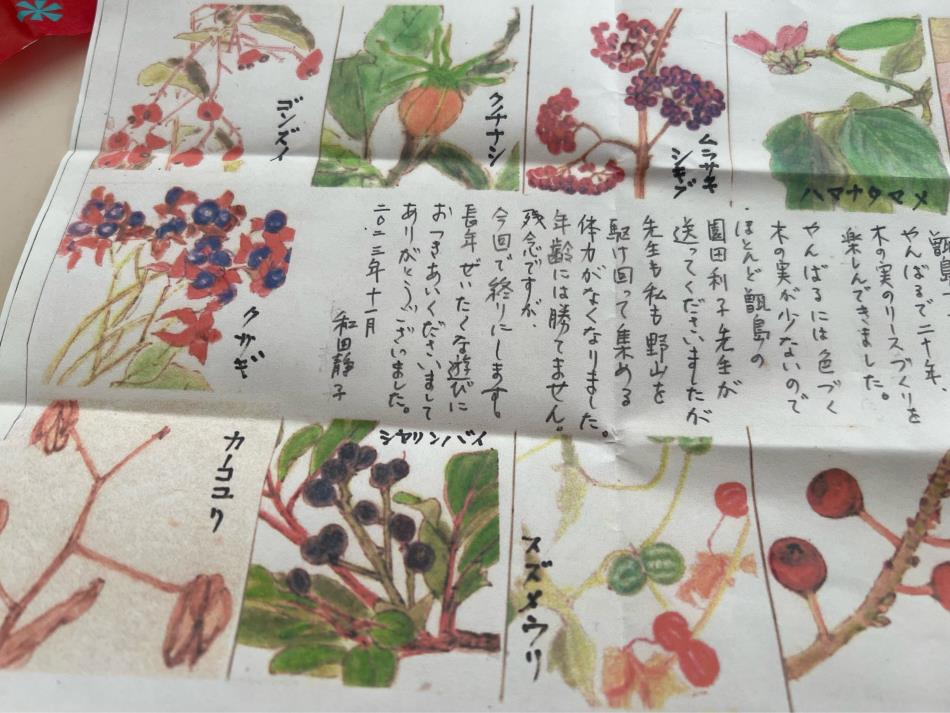 ハマナタマメ
ムラサキ
シキブ
クチナシ
ゴンズイ
甑島
やんばるで二十年
木の実のリースづくりを
楽しんできました。
やんばるには色づく
木の実が少ないので
ほとんど甑島の
園田利子先生が
送ってくださいましたが
先生も私も野山を
駆け回って集める
体力がなくなりました。
年齢には勝てません。
残念ですが、
今回で終りにします。
長年ぜいたくな遊びに
おつきあいくださいまして
ありがとうございました。
二〇二三年十一月
和田靜子
クサギ
スズメウリ
シヤリンバイ
カノコユリ